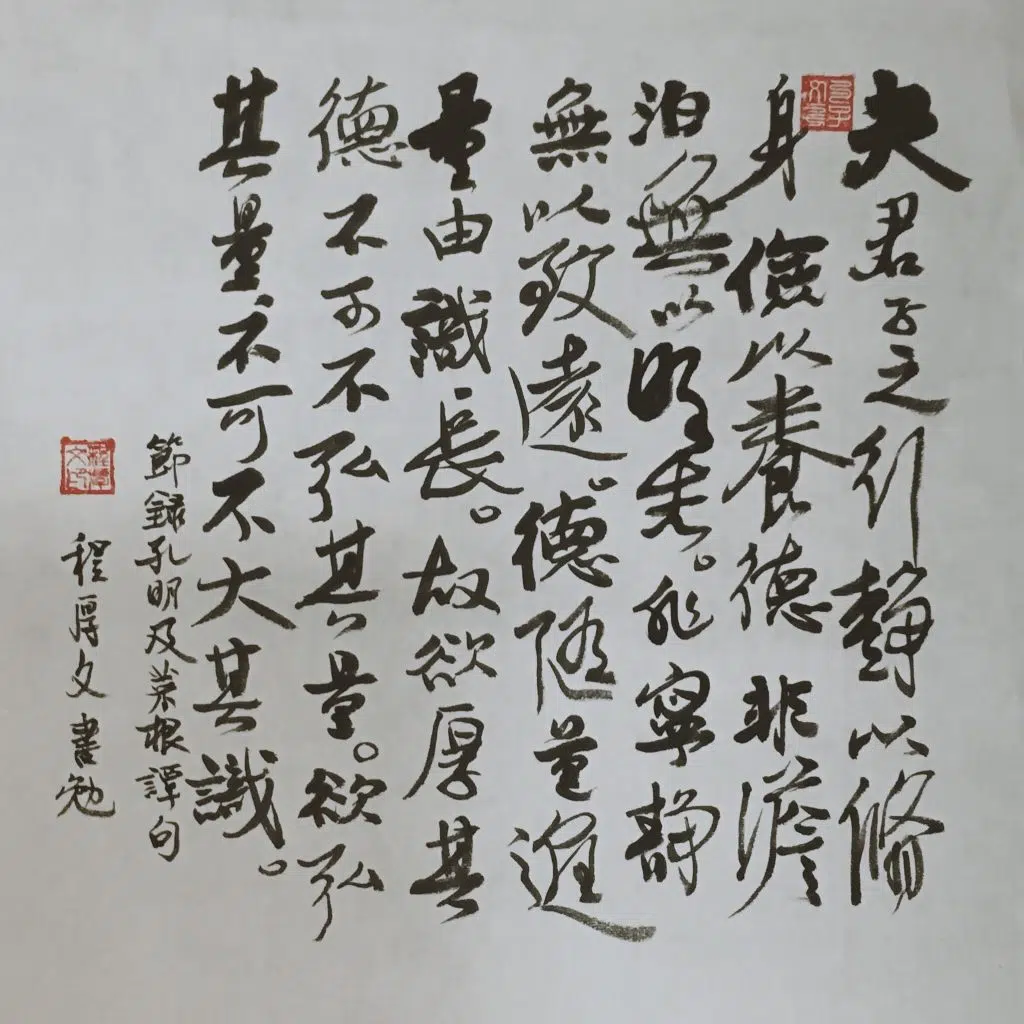 夫君子之行靜以脩
身儉以養德非澹
泊無以明志。非寧静
無以致遠。德隨量進
量由識長。故欲厚其
德不可不弘其量。欲弘
其量不可不大其識。
節録孔明及菜根譚句
程厚文書勉